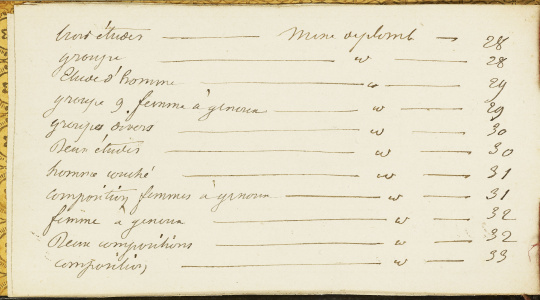 trois études — mine de plomb — 28
groupe — " — 28
Etude d'homme — " — 29
groupe 9. femme à genoux — " — 29
groupes divers — " — 30
Deux études — " — 30
homme couché — " — 31
composition femmes à genoux — " — 31
femme à genoux — " — 32
Deux compositions — " — 32
composition — " — 33